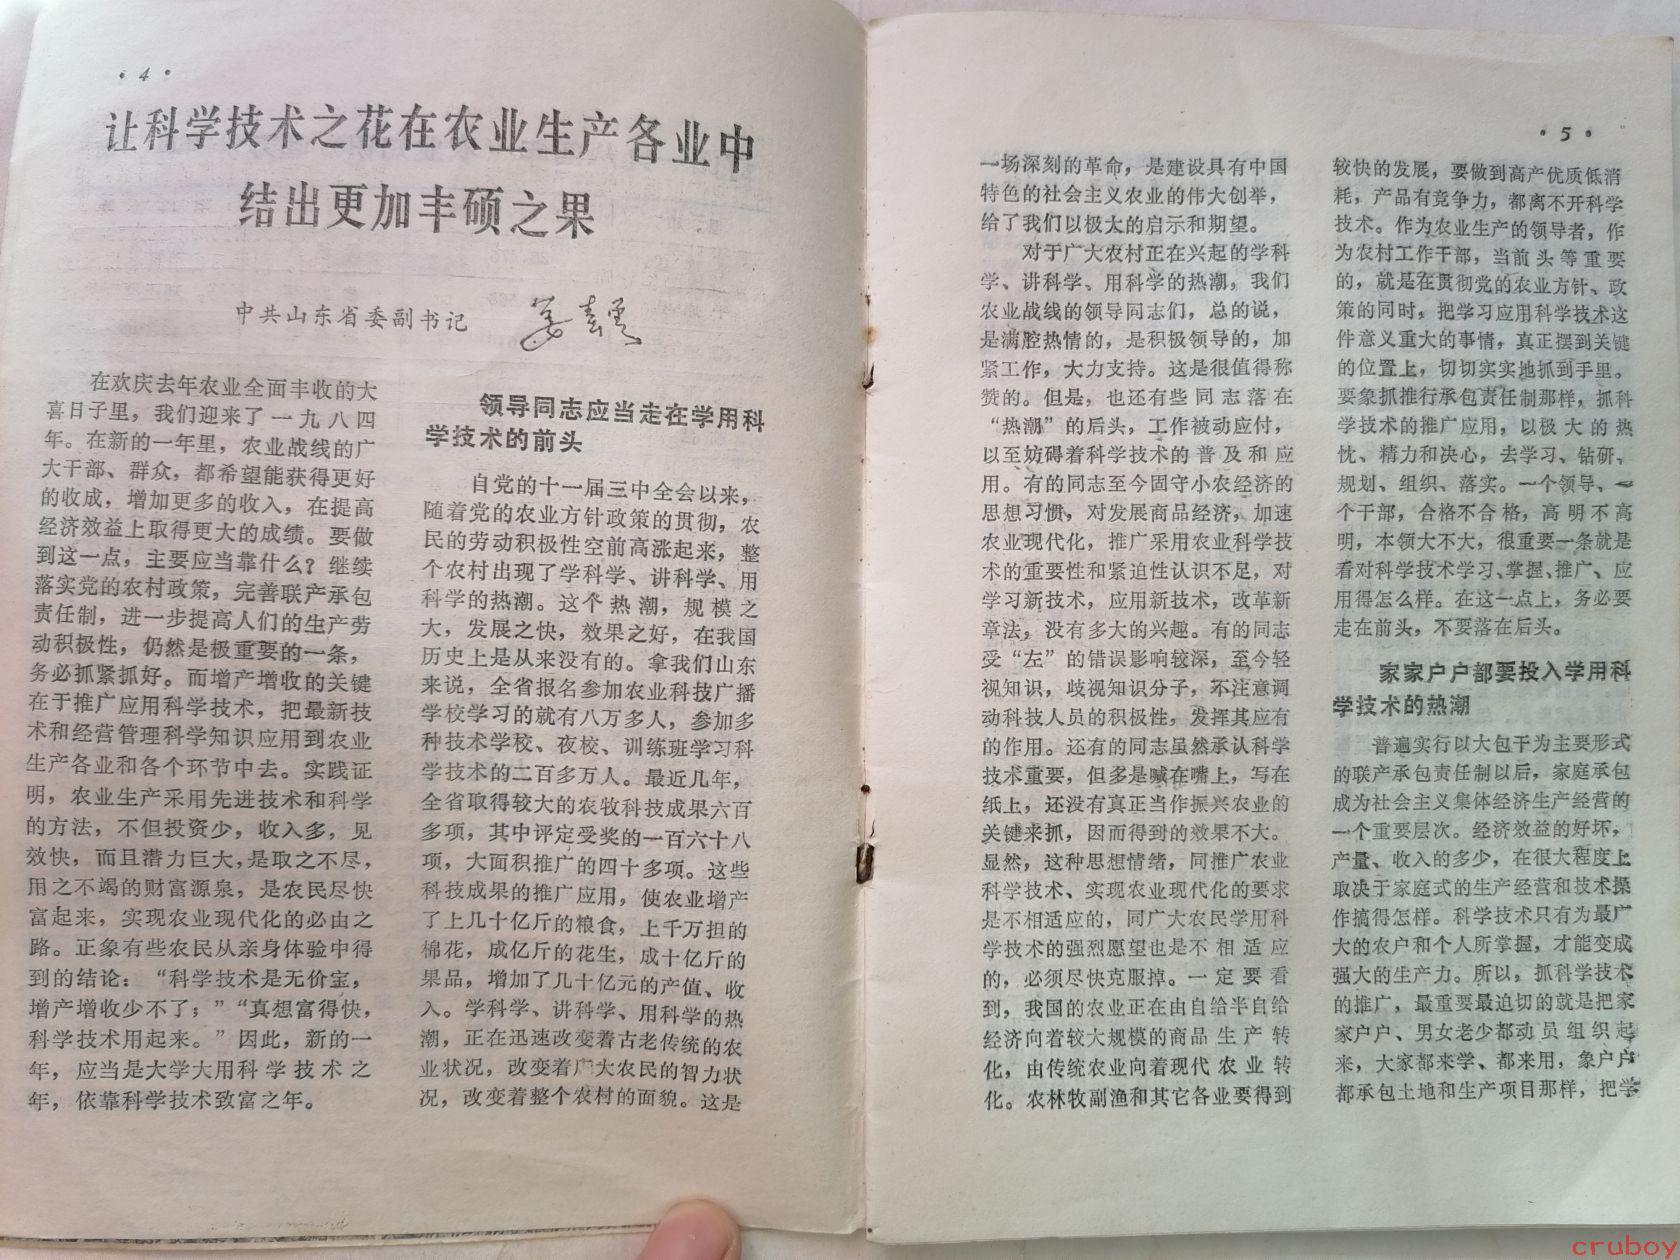 • 4 •
让科学技术之花在农业生产各业中
结出更加丰硕之果
中共山东省委副书记
在欢庆去年农业全面丰收的大
喜日子里，我们迎来了一九八四
年。在新的一年里，农业战线的广
大干部、群众，都希望能获得更好
的收成，增加更多的收入，在提高
经济效益上取得更大的成绩。要做
到这一点，主要应当靠什么？继续
落实党的农村政策，完善联产承包
责任制，进一步提高人们的生产劳
动积极性，仍然是极重要的一条，
务必抓紧抓好。而增产增收的关键
在于推广应用科学技术，把最新技
术和经营管理科学知识应用到农业
生产各业和各个环节中去。实践证
明，农业生产采用先进技术和科学
的方法，不但投资少，收入多，见
效快，而且潜力巨大，是取之不尽，
用之不竭的财富源泉，是农民尽快
富起来，实现农业现代化的必由之
路。正象有些农民从亲身体验中得
到的结论：“科学技术是无价宝，
增产增收少不了；”“真想富得快，
科学技术用起来。”因此，新的一
年，应当是大学大用科学技术之
年，依靠科学技术致富之年。
领导同志应当走在学用科
学技术的前头
自党的十一届三中全会以来，
随着党的农业方针政策的贯彻，农
民的劳动积极性空前高涨起来，整
个农村出现了学科学、讲科学、用
科学的热潮。这个热潮，规模之
大，发展之快，效果之好，在我国
历史上是从来没有的。拿我们山东
来说，全省报名参加农业科技广播
学校学习的就有八万多人，参加多
种技术学校、夜校、训练班学习科
学技术的二百多万人。最近几年，
全省取得较大的农牧科技成果六百
多项，其中评定受奖的一百六十八
项，大面积推广的四十多项。这些
科技成果的推广应用，使农业增产
了上几十亿斤的粮食，上千万担的
棉花，成亿斤的花生，成十亿斤的
果品，增加了几十亿元的产值、收
入。学科学、讲科学、用科学的热
潮，正在迅速改变着古老传统的农
业状况，改变着广大农民的智力状
况，改变着整个农村的面貌。这是
• 5 •
一场深刻的革命，是建设具有中国
特色的社会主义农业的伟大创举，
给了我们以极大的启示和期望。
对于广大农村正在兴起的学科
学、讲科学、用科学的热潮，我们
农业战线的领导同志们，总的说，
是满腔热情的，是积极领导的，加
紧工作，大力支持。这是很值得称
赞的。但是，也还有些同志落在
“热潮”的后头，工作被动应付，
以至妨碍着科学技术的普及和应
用。有的同志至今固守小农经济的
思想习惯，对发展商品经济，加速
农业现代化，推广采用农业科学技
术的重要性和紧迫性认识不足，对
学习新技术，应用新技术，改革新
章法，没有多大的兴趣。有的同志
受“左”的错误影响较深，至今轻
视知识，歧视知识分子，不注意调
动科技人员的积极性，发挥其应有
的作用。还有的同志虽然承认科学
技术重要，但多是喊在嘴上，写在
纸上，还没有真正当作振兴农业的
关键来抓，因而得到的效果不大。
显然，这种思想情绪，同推广农业
科学技术、实现农业现代化的要求
是不相适应的，同广大农民学用科
学技术的强烈愿望也是不相适应
的，必须尽快克服掉。一定要看
到，我国的农业正在由自给半自给
经济向着较大规模的商品生产转
化，由传统农业向着现代农业转
化。农林牧副渔和其它各业要得到
较快的发展，要做到高产优质低消
耗，产品有竞争力，都离不开科学
技术。作为农业生产的领导者，作
为农村工作干部，当前头等重要
的，就是在贯彻党的农业方针、政
策的同时，把学习应用科学技术这
件意义重大的事情，真正摆到关键
的位置上，切切实实地抓到手里。
要象抓推行承包责任制那样，抓科
学技术的推广应用，以极大的热
忱、精力和决心，去学习、钻研、
规划、组织、落实。一个领导、一
个干部，合格不合格，高明不高
明，本领大不大，很重要一条就是
看对科学技术学习、掌握、推广、应
用得怎么样。在这一点上，务必要
走在前头，不要落在后头。
家家户户都要投入学用科
学技术的热潮
普遍实行以大包干为主要形式
的联产承包责任制以后，家庭承包
成为社会主义集体经济生产经营的
一个重要层次。经济效益的好坏，
产量、收入的多少，在很大程度上
取决于家庭式的生产经营和技术操
作搞得怎样。科学技术只有为最广
大的农户和个人所掌握，才能变成
强大的生产力。所以，抓科学技术
的推广，最重要最迫切的就是把家
家户户、男女老少都动员组织起
来，大家都来学、都来用，象户户
都承包土地和生产项目那样，把学
cruboy